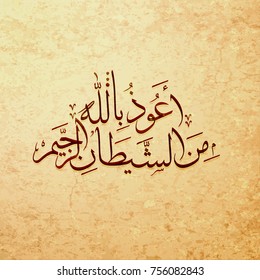 أَعُوذُ بِاللَّهِ
مِنَ الشَّيْطَانِ الرَّجِيمِ
shutterstock.com · 756082843